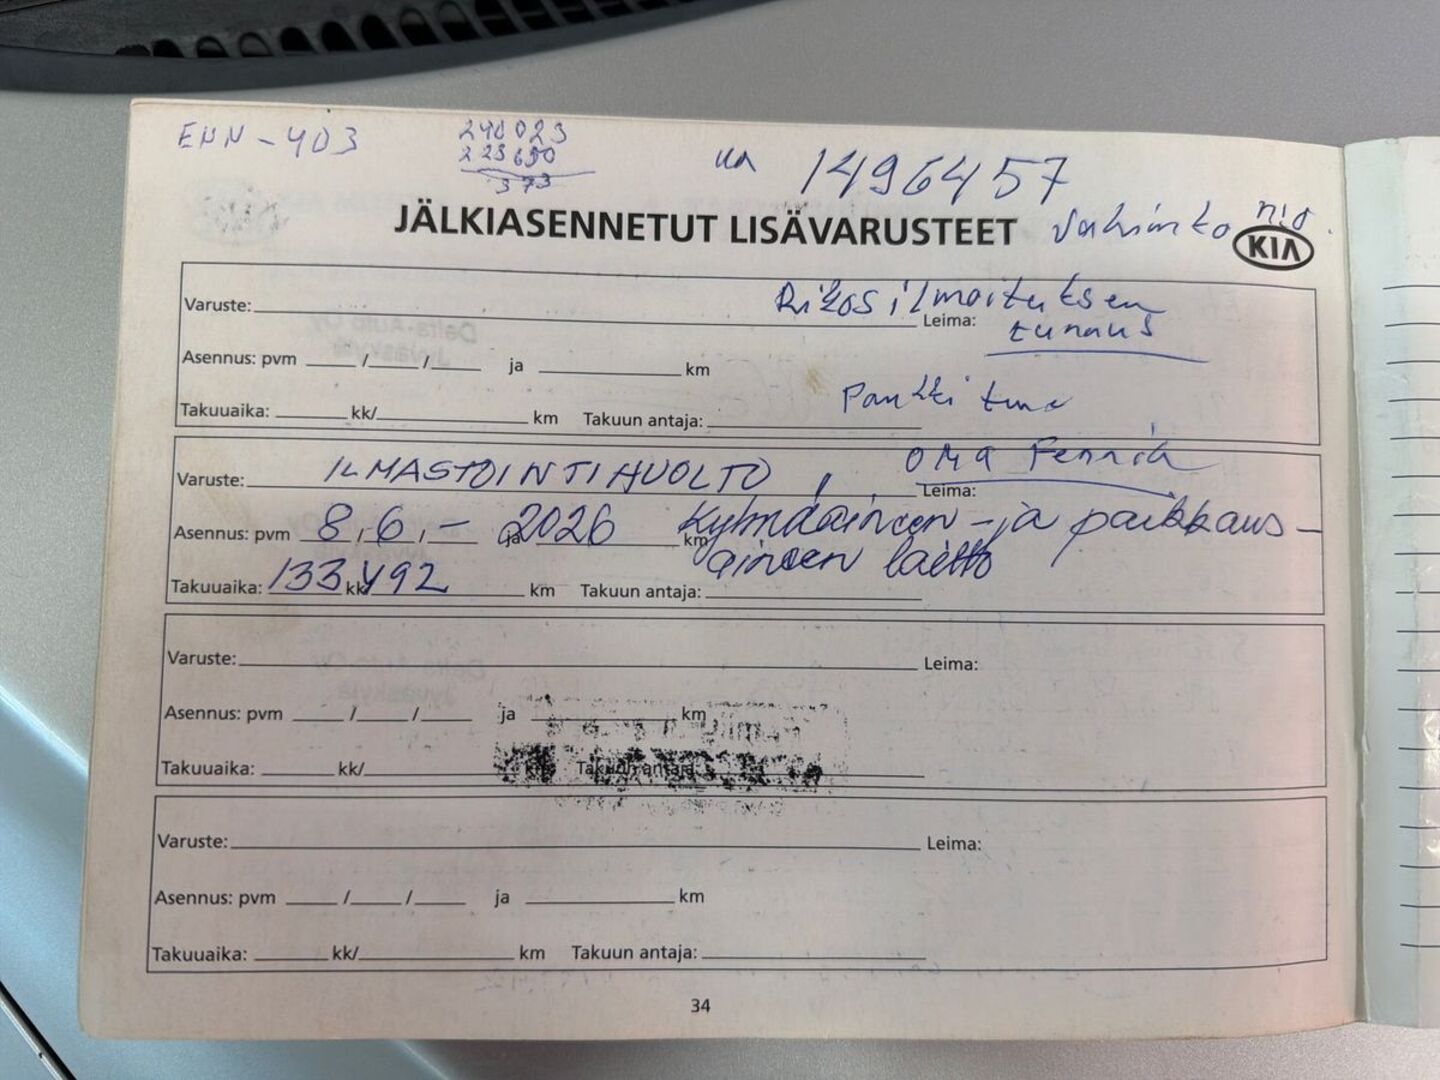 EHN-403
240023
223650
373
1496457
JÄLKIASENNETUT LISÄVARUSTEET
Vahinko
KIA
Rikosilmoituksen
Varuste:
Leima:
tunnus
Asennus: pvm / / ja km
Pankki
Takuuaika: kk/ km Takuun antaja:
OMA Fennia
Varuste: ILMASTOINTIHUOLTO,
Leima:
Asennus: pvm 8.6.- 2026 ja km Kylmäaineen- ja paikkaus-
aineen laitto
Takuuaika: 133492 kk/ km Takuun antaja:
Varuste: Leima:
Asennus: pvm / / ja km
Takuuaika: kk/ km Takuun antaja:
Varuste: Leima:
Asennus: pvm / / ja km
Takuuaika: kk/ km Takuun antaja:
34